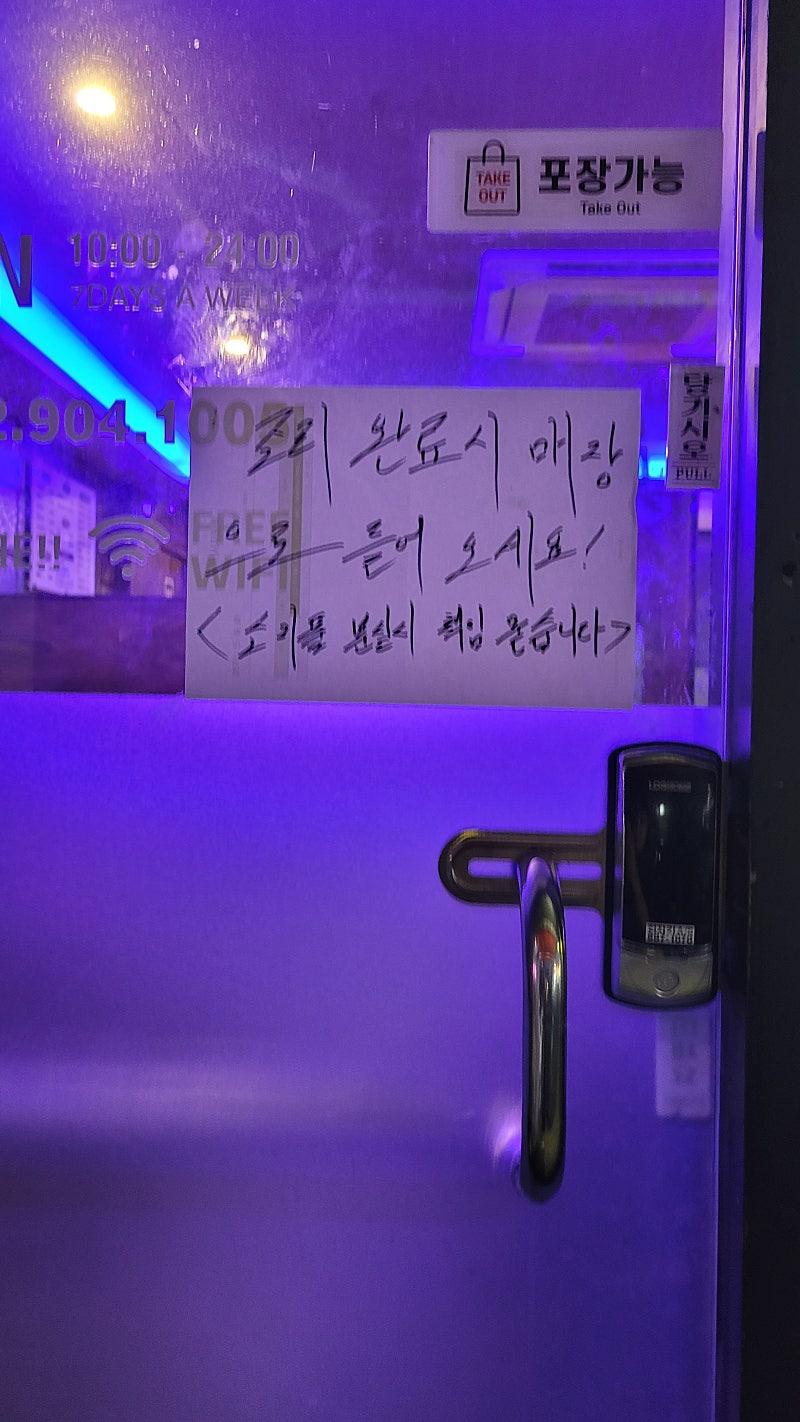 TAKE OUT
포장가능
Take Out
N 10:00 - 24:00
7DAYS A WEEK
당기시오
PULL
2.904.1005
조리 완료시 매장
으로 들어 오시요!
<소지품 분실시 책임 못습니다>
FREE
WIFI